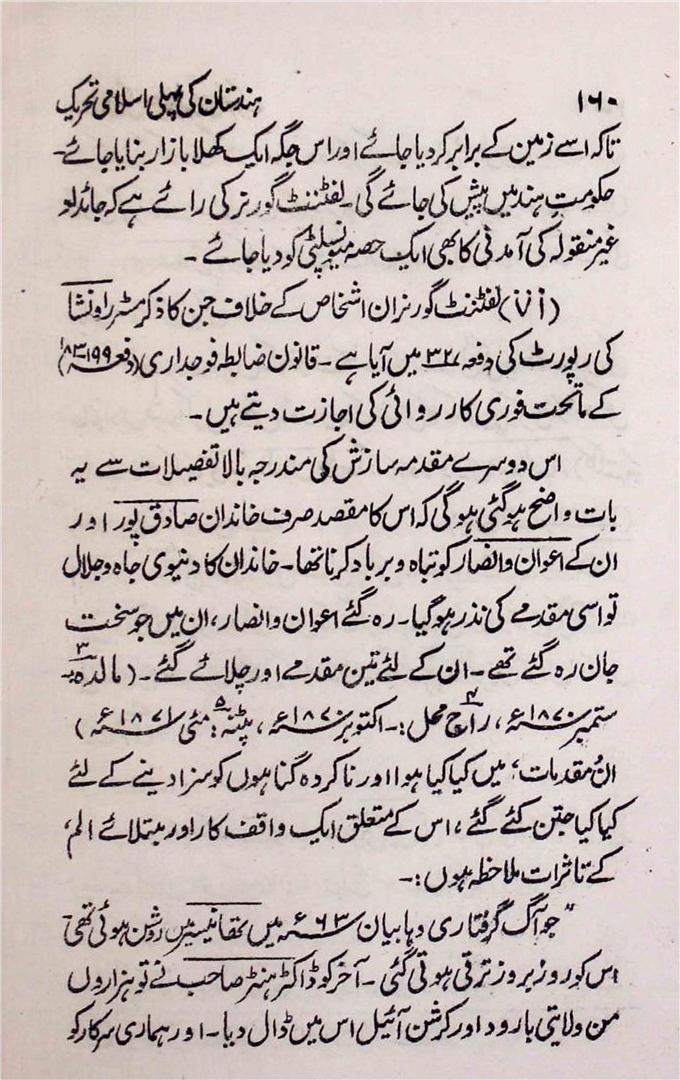 ۱۶۰ ہندستان کی پہلی اسلامی تحریک
تاکہ اسے زمین کے برابر کر دیا جائے اور اس جگہ ایک کھلا بازار بنایا جائے۔
حکومتِ ہند میں پیش کی جائے گی۔ لفٹننٹ گورنر کی رائے ہے کہ جائداد
غیر منقولہ کی آمدنی کا بھی ایک حصہ میونسپلٹی کو دیا جائے۔
(vi) لفٹننٹ گورنر ان اشخاص کے خلاف جن کا ذکر مسٹر راونشا
کی رپورٹ کی دفعہ ۳۲ میں آیا ہے۔ قانون ضابطہ فوجداری (دفعہ
کے ماتحت فوری کارروائی کی اجازت دیتے ہیں۔
اس دوسرے مقدمہ سازش کی مندرجہ بالا تفصیلات سے یہ
بات واضح ہو گئی ہو گی کہ اس کا مقصد صرف خاندان صادق پور اور
ان کے اعوان وانصار کو تباہ و برباد کرنا تھا۔ خاندان کا دنیوی جاہ و جلال
تو اسی مقدمے کی نذر ہو گیا۔ رہ گئے اعوان و انصار، ان میں جو سخت
جان رہ گئے تھے۔ ان کے لئے تین مقدمے اور چلائے گئے۔ (مالدہ۳:۔
ستمبر ۱۸۷۰ء، راج محل۴:۔ اکتوبر ۱۸۷۰ء، پٹنہ۵: مئی ۱۸۷۱ء)
ان 'مقدمات' میں کیا کیا ہوا اور ناکردہ گناہوں کو سزا دینے کے لئے
کیا کیا جتن کئے گئے، اس کے متعلق ایک واقف کار اور مبتلائے الم،
کے تاثرات ملاحظہ ہوں:۔
"جو آگ گرفتاری وہابیان ۶۳ء میں تھانیسر میں روشن ہوئی تھی
اس کو روز بروز ترقی ہوتی گئی۔ آخر کو ڈاکٹر ہنٹر صاحب نے تو ہزاروں
من ولایتی بارود اور کرشن آئیل اس میں ڈال دیا۔ اور ہماری سرکار کو